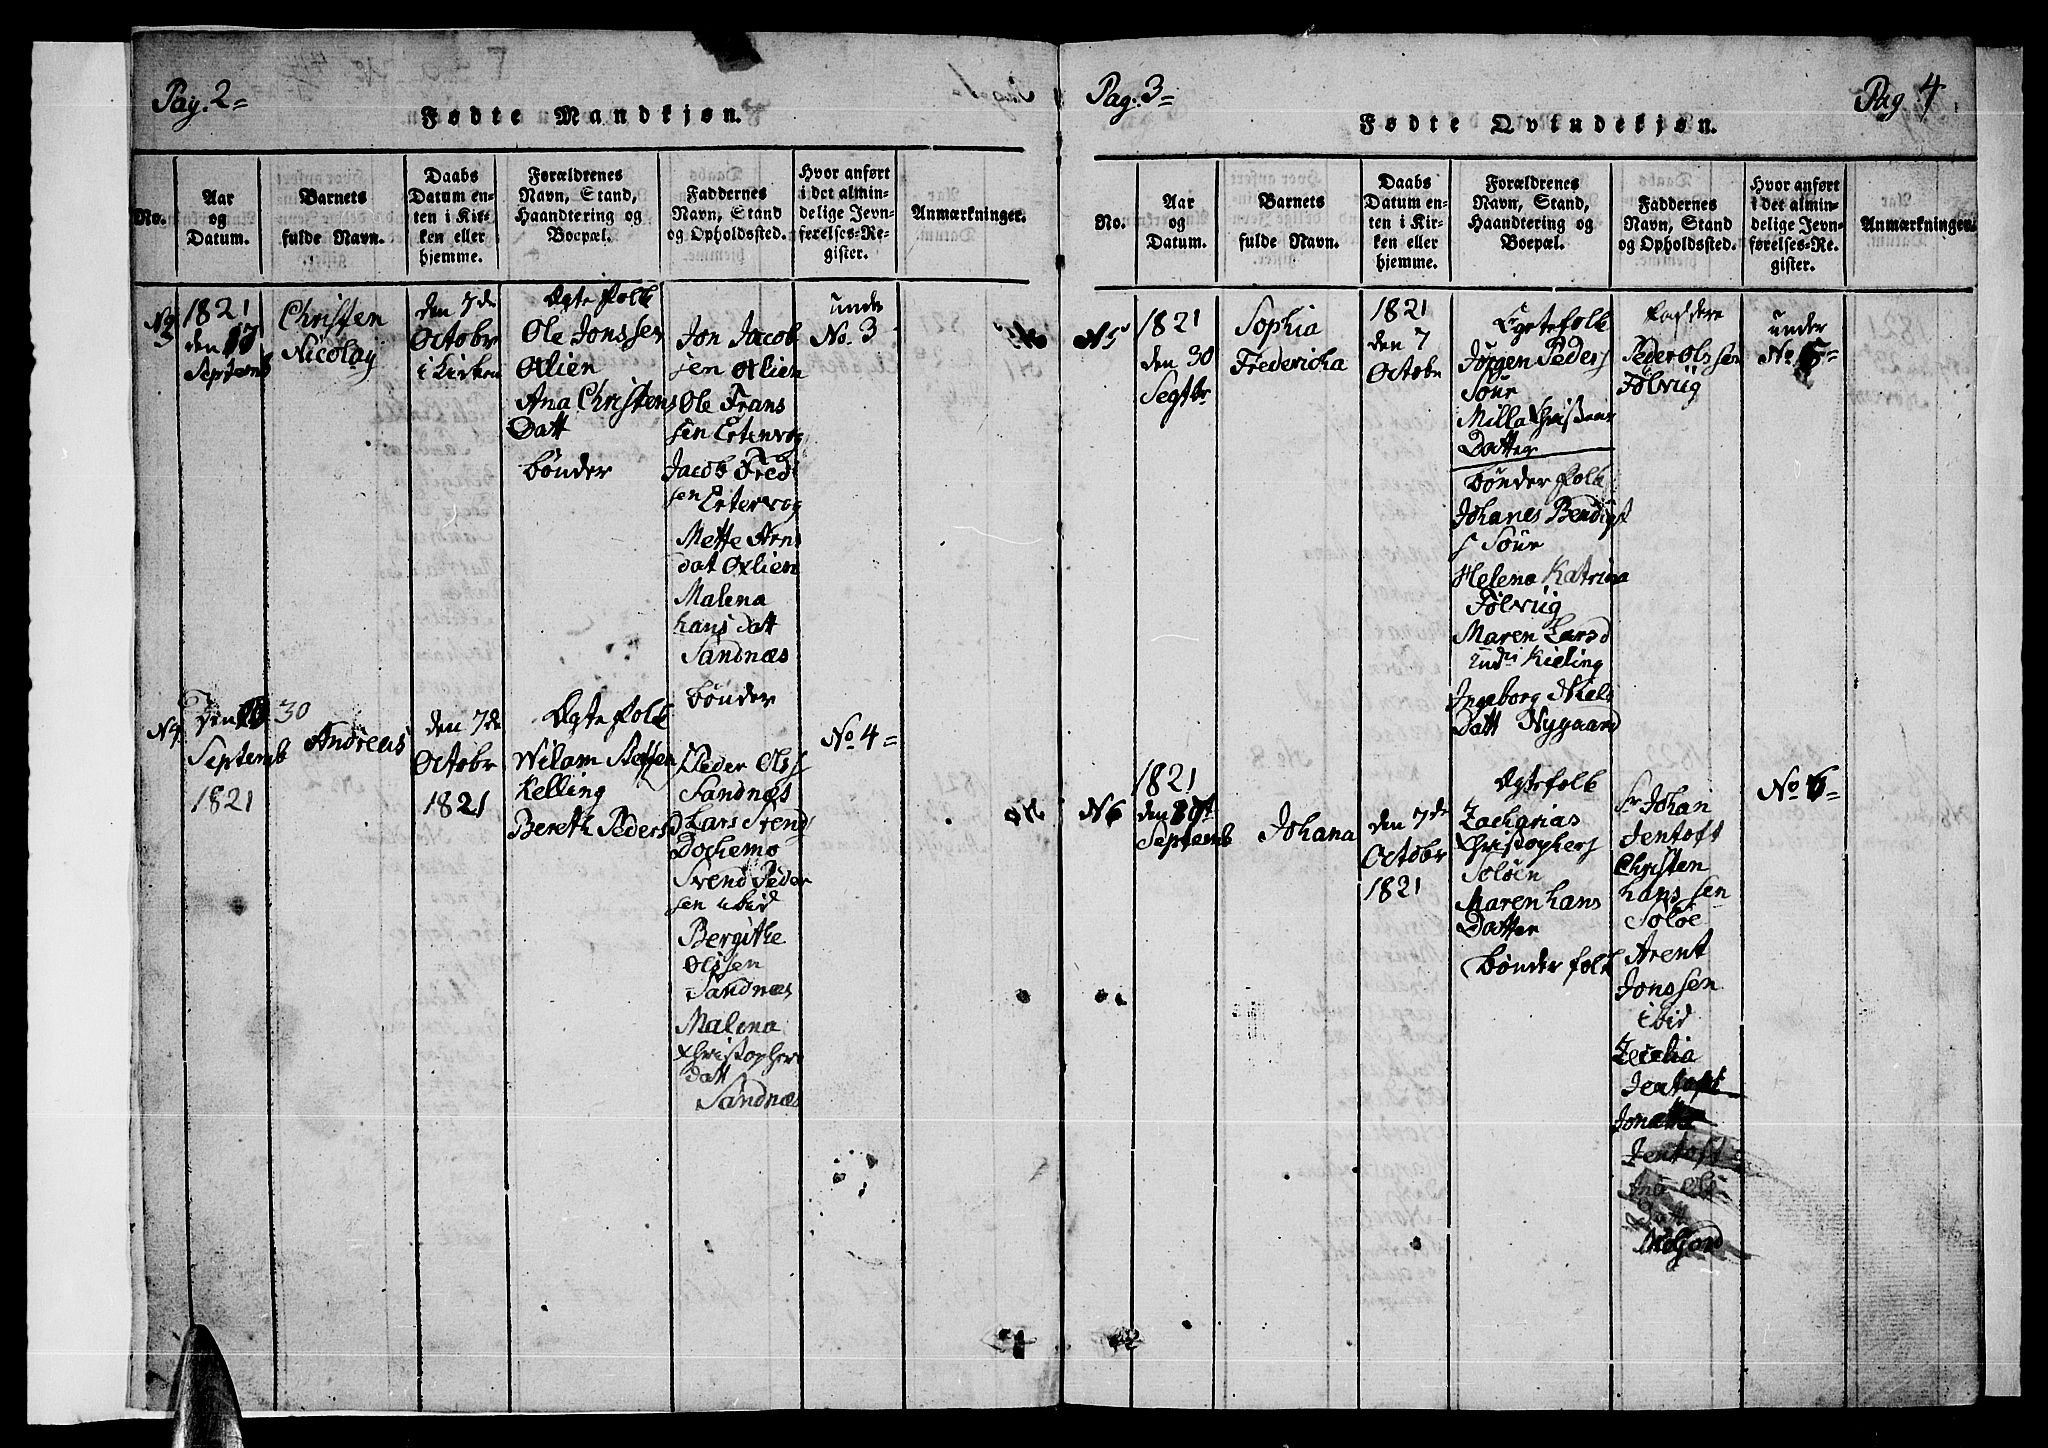 Pag. 2=
Fødte Mandkjøn.
No.
Aar
og
Datum.
Barnets
fulde Navn.
Daabs
Datum en-
ten i Kir-
ken eller
hjemme.
Forældrenes
Navn, Stand,
Haandtering og
Boepæl.
Faddernes
Navn, Stand
og Opholdssted.
Hvor anført
i det almin-
delige Jevn-
førelses-Re-
gister.
Anmærkninger.
No
3
1821
den 17
Septemb
Christen
Nicolay
den 7de
Octobr
i Kirken
Ægte folk
Ole Jonssen
Oxlien
Ana Christens
Datt
bønder
Jon Jacob
sen Oxlien
Ole Frans
sen Ertenvog
Jacob Fred
sen Ertervog
Mette Arns
dat Oxlien
Malena
hans Datt
Sandnæs
bønder
under
No. 3
N4
den 30
Septemb
1821
Andreas
den 7de
Octobr
1821
Ægte folk
Wilam
Kelling
Bereth Pedersd
Peder Olss
Sandnæs
Lars Svend
Svend Peder
sen ibid
Bergithe
Olssen
Sandnæs
Malena
Christophers
Datt
Sandnæs
No 4=
Pag: 3=
Pag 4
Fødte Qvindekjøn.
No.
Aar
og
Datum.
Barnets
fulde Navn.
Daabs
Datum en-
ten i Kir-
ken eller
hjemme.
Forældrenes
Navn, Stand,
Haandtering og
Boepæl.
Faddernes
Navn, Stand
og Opholdssted.
Hvor anført
i det almin-
delige Jevn-
førelses-Re-
gister.
Anmærkninger.
N5
1821
den 30
Septbr
Sophia
Fredericha
1821
den 7
Octobr
Egtefolk
Jørgen Peders
Søur
Milla Christians
Datter
bønder folk
Johanes Bendigt
s Søur
Helena Katrina
Fölvüg
Maren Larsd
Kieling
Ingeborg Niels
Datt Nygaard
Faddere
Peder Olssen
Fölvüg
under
No 5=
N6
1821
den 19
Septemb
Johana
den 7de
Octobr
1821
Ægtefolk
Zacharias
Christophers
Soløen
Maren hans
Datter
bønder folk
Sr Johan
Jentoft
Christen
hans sen
Soløe
Arent
Jonssen
ibid
Zecelia
Jentoft
Jentoft
Datt
No 6=